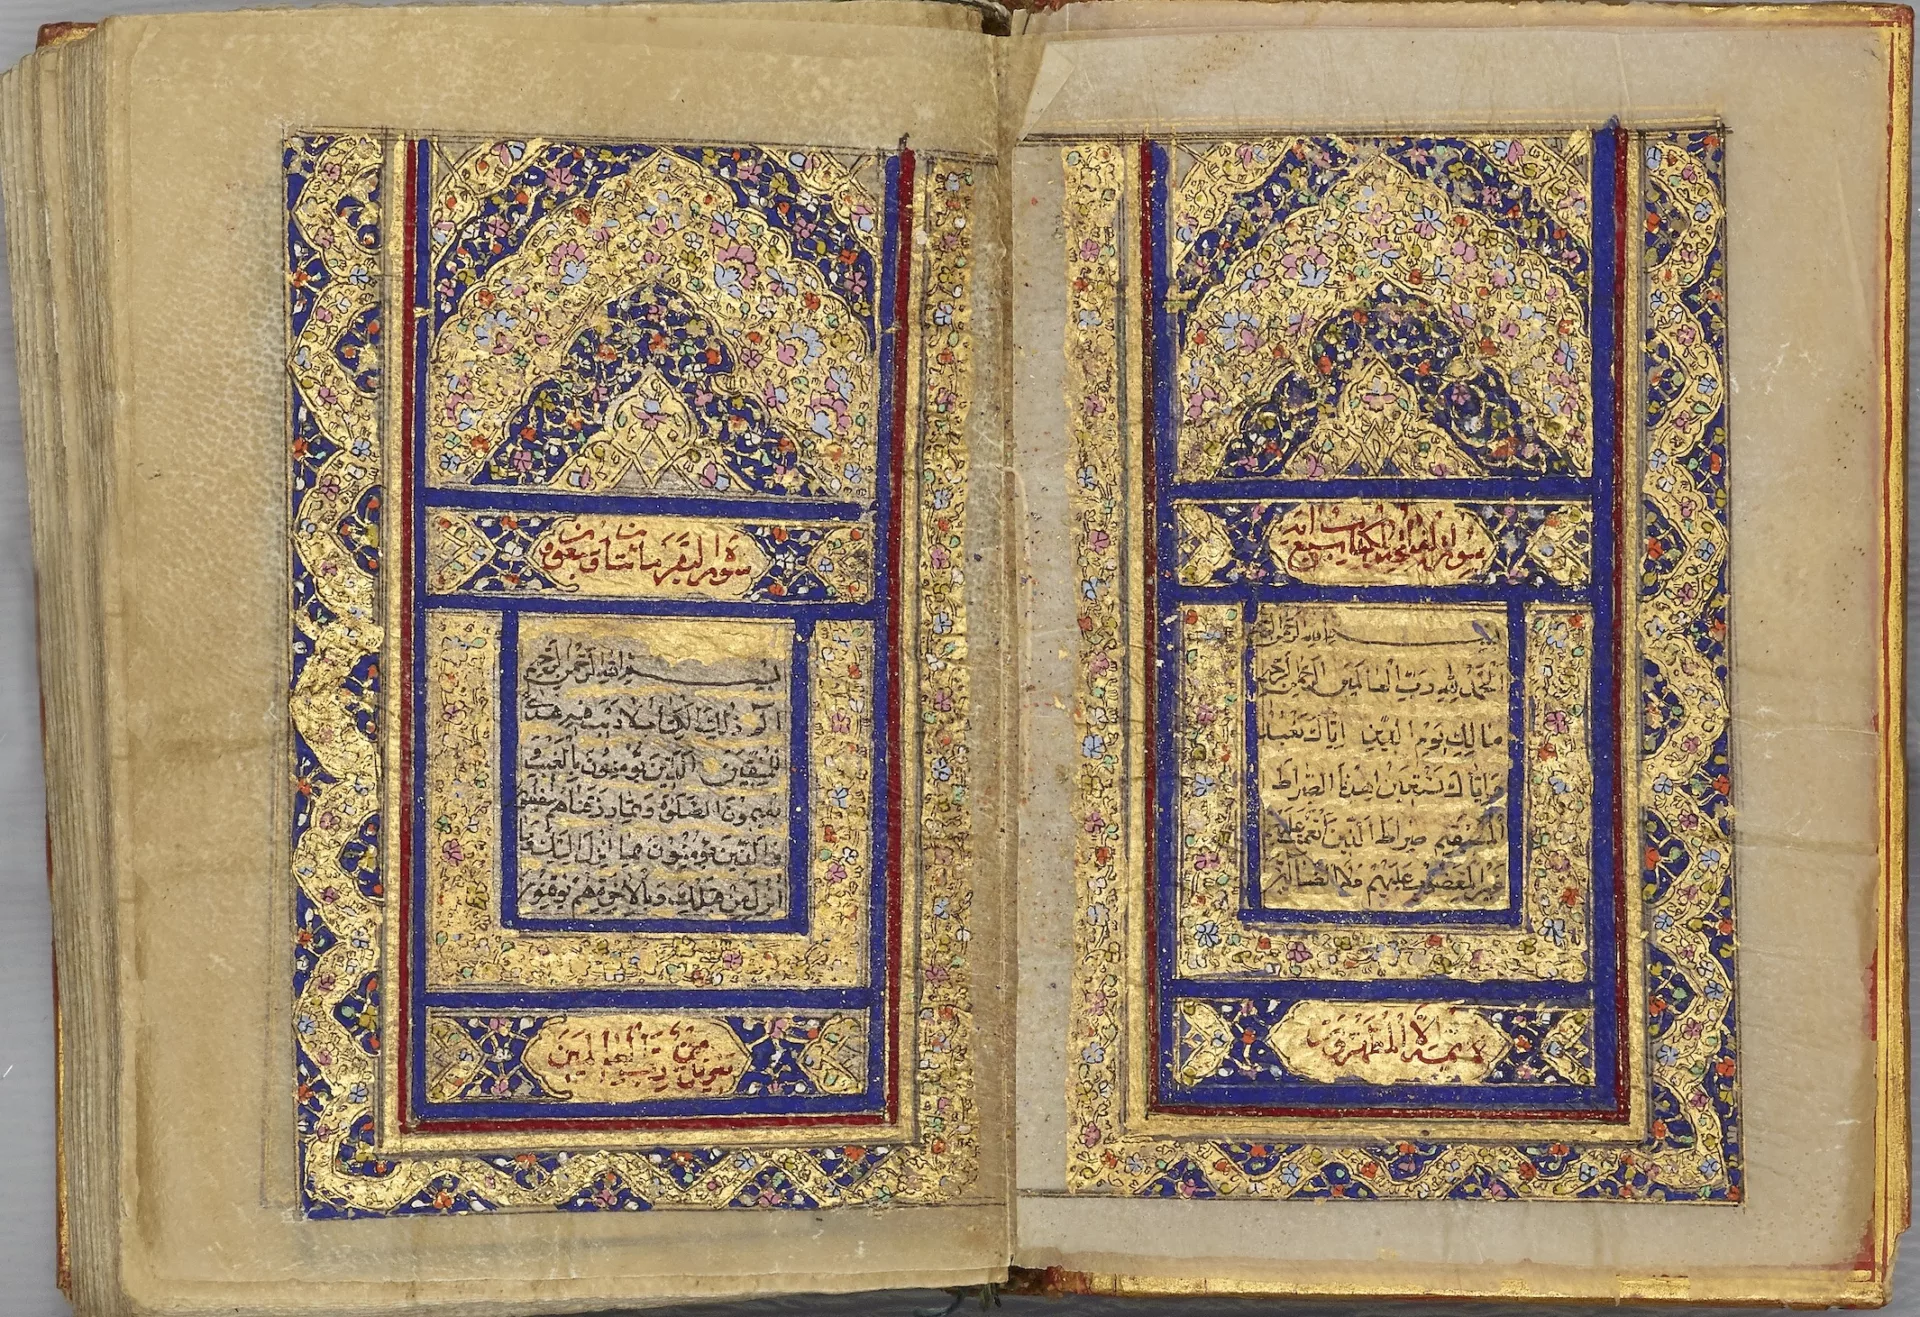 سورة الفاتحة الكتاب سبع آية
بسم الله الرحمن الرحيم
الحمد لله رب العالمين الرحمن الرحيم
مالك يوم الدين اياك نعبد
واياك نستعين اهدنا الصراط
المستقيم صراط الذين انعمت عليهم
غير المغضوب عليهم ولا الضالين
لا يمسه الا المطهرون
سورة البقره مائتان وست وثمانون
بسم الله الرحمن الرحيم
الم ذلك الكتاب لا ريب فيه هدى
للمتقين الذين يؤمنون بالغيب و
يقيمون الصلوة ومما رزقناهم ينفقون
والذين يؤمنون بما انزل اليك وما
انزل من قبلك وبالاخرة هم يوقنون
تنزيل من رب العالمين